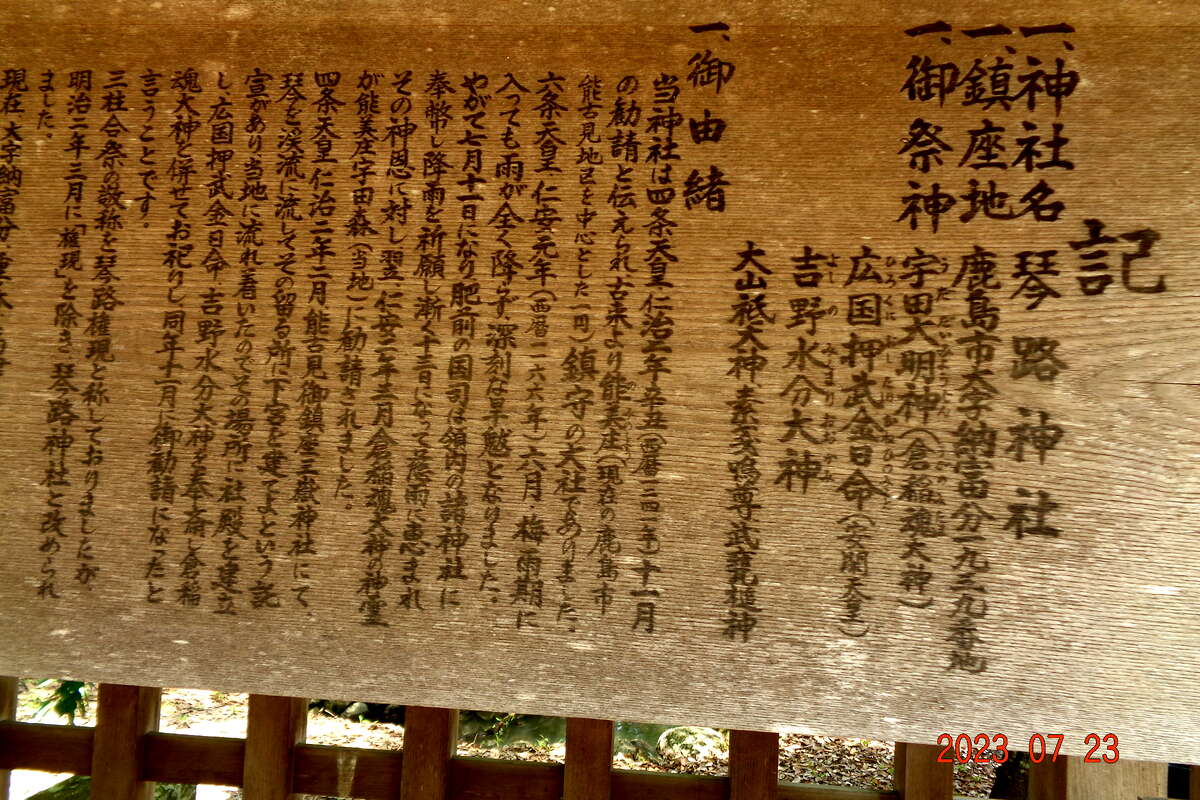 記
一、神社名 琴路神社
一、鎮座地 鹿島市大字納富分一九三九番地
一、御祭神 宇田大明神（倉稲魂大神）
広国押武金日命（安閑天皇）
吉野水分大神
大山祇大神 素戔嗚尊 武甕槌神
一、御由緒
当神社は四条天皇 仁治二年辛丑（西暦一二四一年）十一月
の勧請と伝えられ古来より能美庄（現在の鹿島市
能古見地区を中心とした一円）鎮守の大社でありました。
六条天皇 仁安元年（西暦一一六六年）六月、梅雨期に
入っても雨が全く降らず、深刻な旱魃となりました。
やがて七月十一日になり肥前の国司は領内の諸神社に
奉幣し降雨を祈願し漸く十三日になって慈雨に恵まれ
その神恩に対し翌、仁安二年三月倉稲魂大神の神霊
が能美庄宇田森（当地）に勧請されました。
四条天皇仁治二年二月能古見御鎮座三嶽神社にて、
琴を渓流に流してその留る所に下宮を建てよという託
宣があり当地に流れ着いたのでその場所に社殿を建立
し、広国押武金日命・吉野水分大神を奉斎し倉稲
魂大神と併せてお祀りし同年十一月に御勧請になったと
言うことです。
三柱合祭の敬称を琴路権現と称しておりましたが
明治二年三月に「権現」を除き、琴路神社と改められ
ました。
現在、大字納富分
2023 07 23